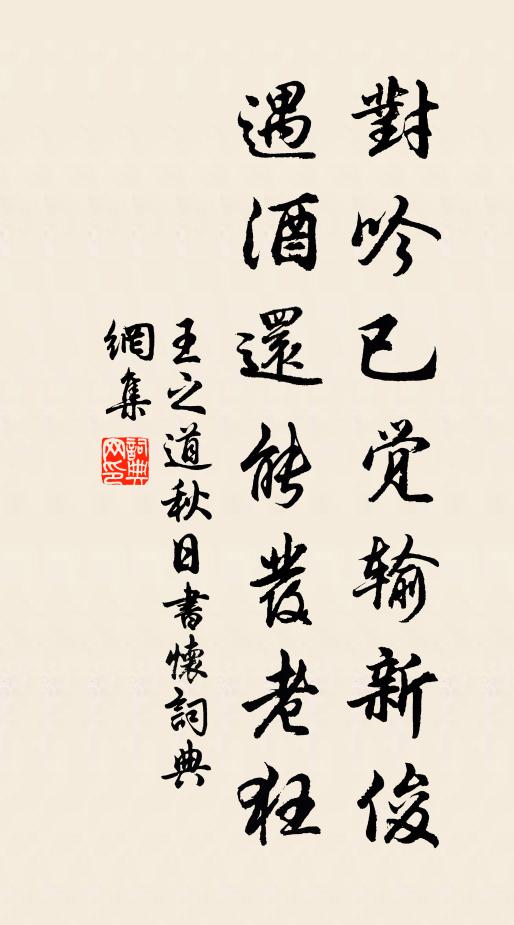 對吟已覺输新俊
遇酒還能發老狂
王之道秋日書懷詞典
網集
詞典網印